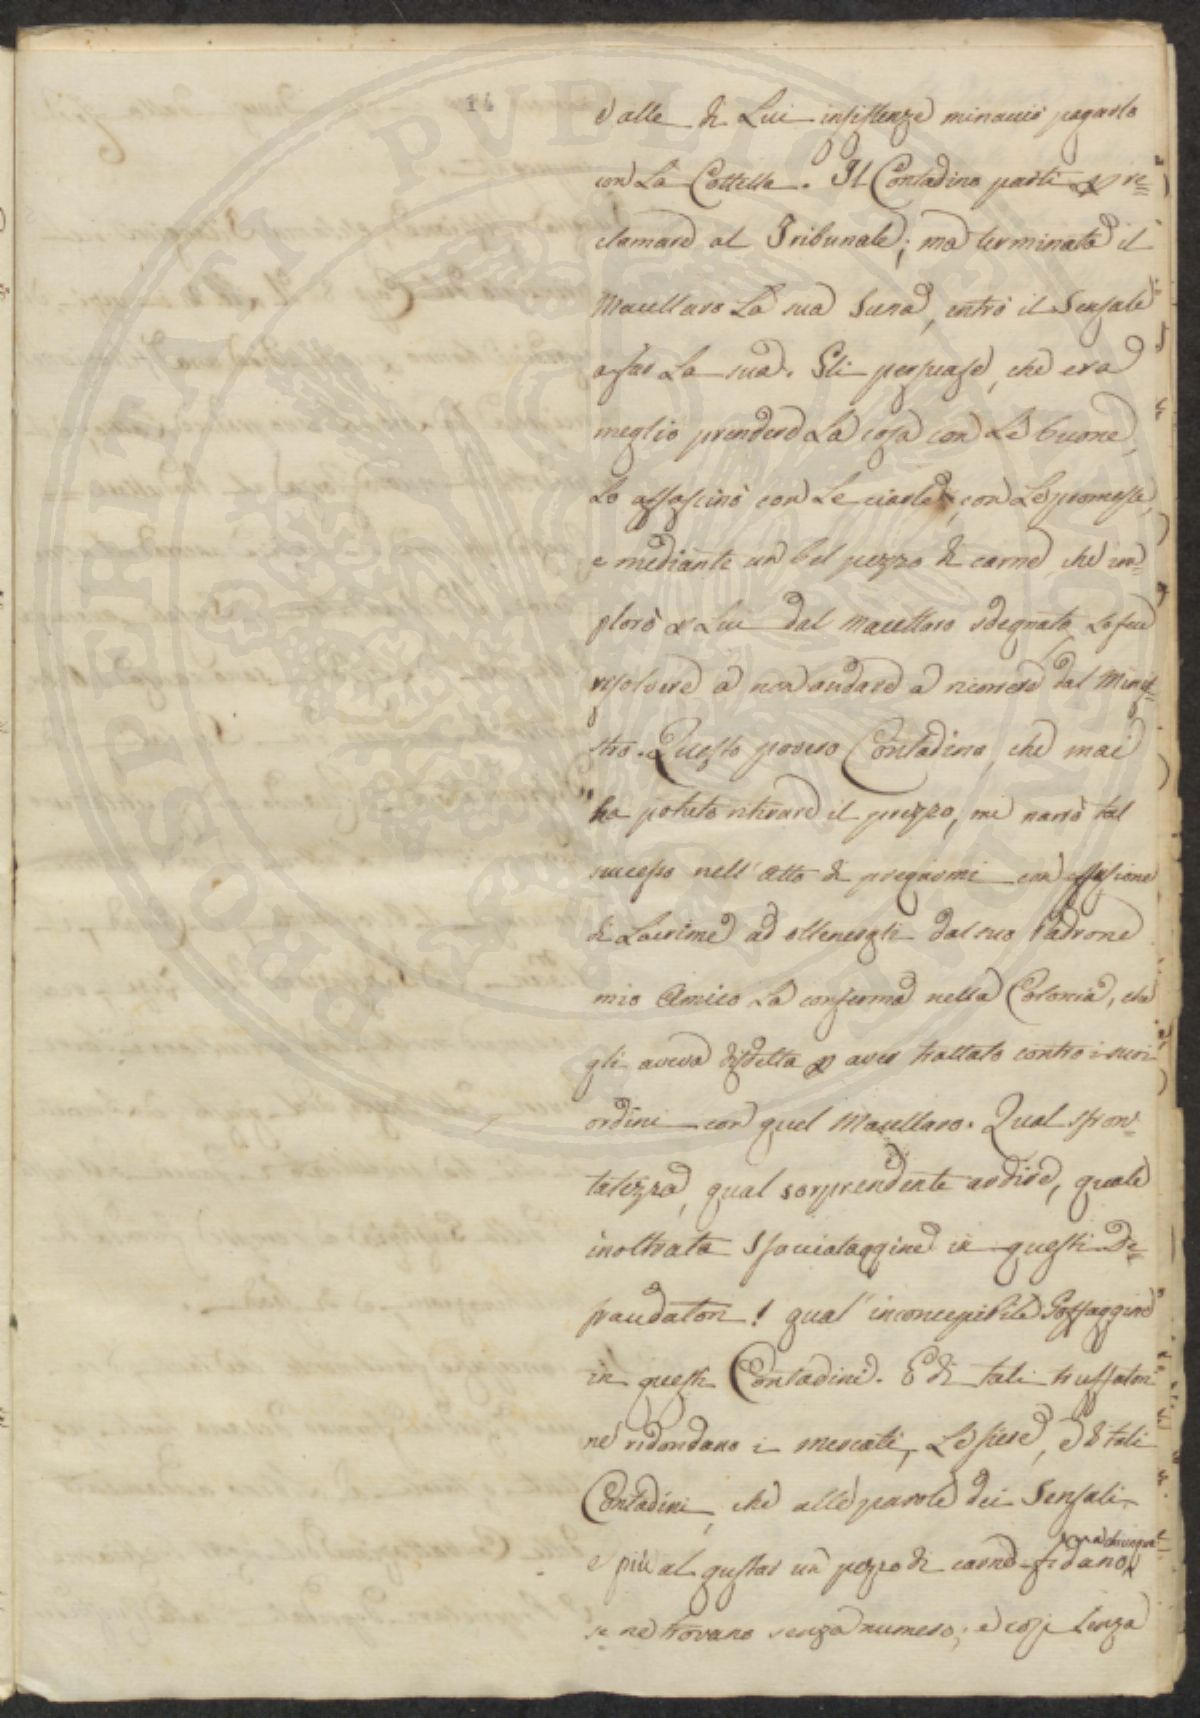 14
e alle di Lui insistenze minacciò pagarlo
con La Coltella. Il Contadino partì p re=
clamare al Tribunale; ma terminata il
Macellaro La sua Scena, entrò il Sensale
a far La sua. Gli persuase, che era
meglio prendere La cosa con Le buone,
Lo affascinò con Le ciarle, con Le promesse,
e mediante un bel pezzo di carne, che im=
plorò p Lui dal Macellaro sdegnato, Lo fece
risolvere a non andare a ricorrere dal Mini=
stro. Questo povero Contadino, che mai
ha potuto ritirare il prezzo, mi narrò tal
successo nell'atto di pregarmi con effusione
di Lacrime ad ottenergli dal suo Padrone
mio Amico La conferma nella Colonia, che
gli aveva disdetta p aver trattato contro i suoi
ordini con quel Macellaro. Qual sfron=
tatezza, qual sorprendente ardire, quale
inoltrata sfacciataggine in questi De=
fraudatori! qual'inconcepibile Goffaggine
in questi Contadini. E di tali truffatori
ne ridondano i mercati, Le fiere, e di tali
Contadini, che alle parole dei Sensali,
e più al gustar un pezzo di carne fidano,
se ne trovano senza numero; e così senza
PROSPERITATI PVBLICAE